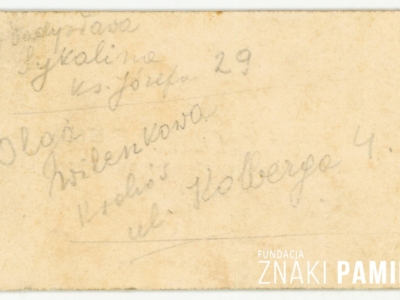 Władysława
Sykalina
ks. Józefa 29
Olga
Wilenkowa
Kraków
ul. Kolberga 4.
FUNDACJA
ZNAKI PAMI